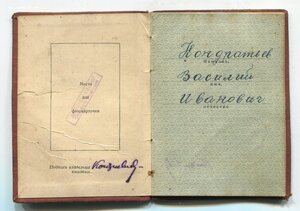 Место
для
фотокарточки
Подпись владельца
книжки
Кондратьев
фамилия
Василий
имя
Иванович
отчество